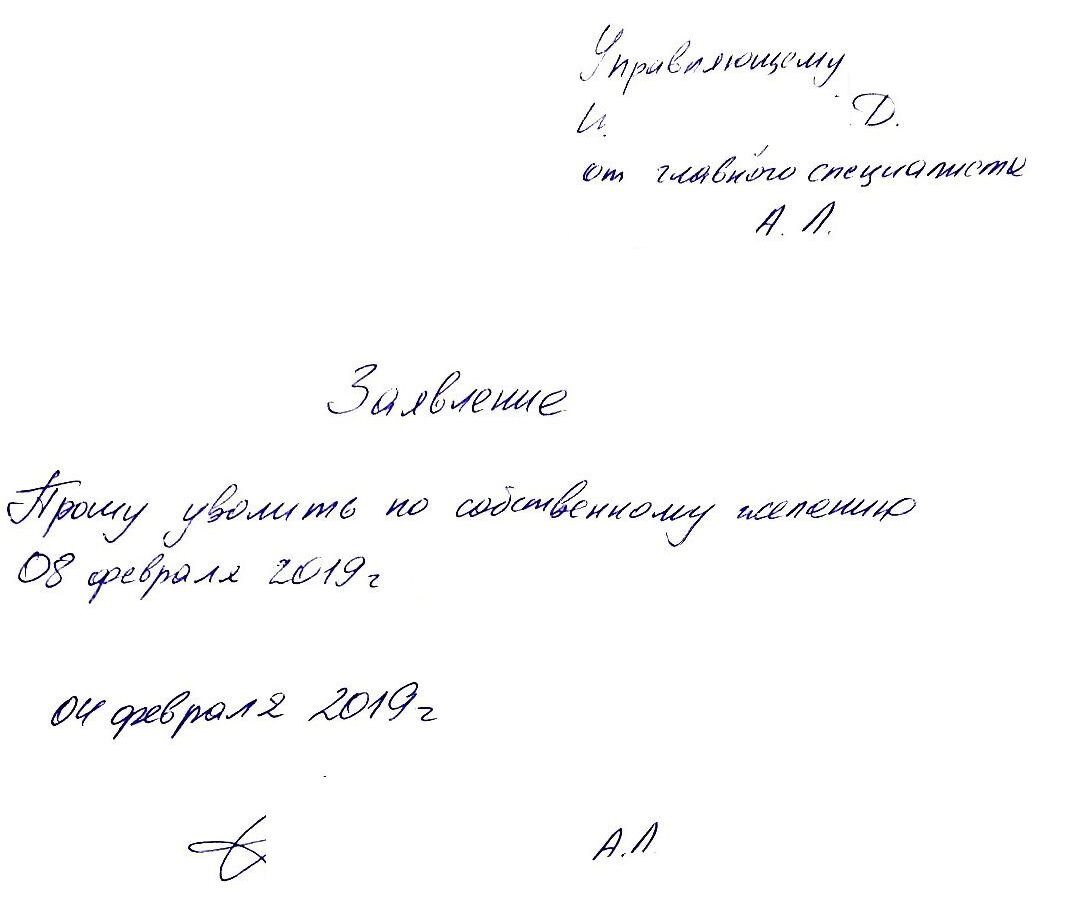 Управляющему
И. Д.
от главного специалиста
А. Л.
Заявление
Прошу уволить по собственному желанию
08 февраля 2019 г
04 февраля 2019 г
А.Л